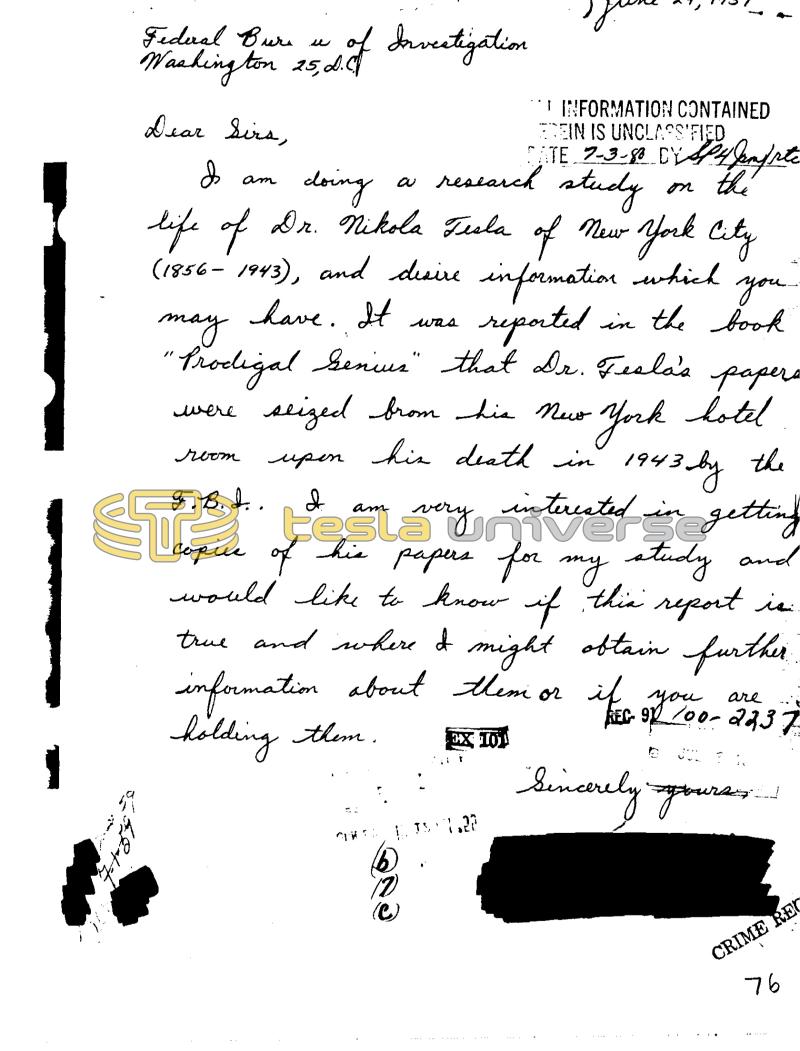 June 24, 1957
Federal Bure u of Investigation
Washington 25, D.C.
INFORMATION CONTAINED
EIN IS UNCLASSIFIED
DATE 7-3-80 BY SP4
Dear Sirs,
I am doing a research study on the
life of Dr. Nikola Tesla of New York City
(1856 - 1943), and desire information which you
may have. It was reported in the book
"Prodigal Genius" that Dr. Tesla's papers
were seized from his New York hotel
room upon his death in 1943 by the
F.B.I.. I am very interested in getting
tesla universe
copies of his papers for my study and
would like to know if this report is
true and where I might obtain further
information about them or if you are
REC- 91 100-2237
holding them.
EX 101
Sincerely yours,
(b)
(7)
(C)
CRIME REC
76